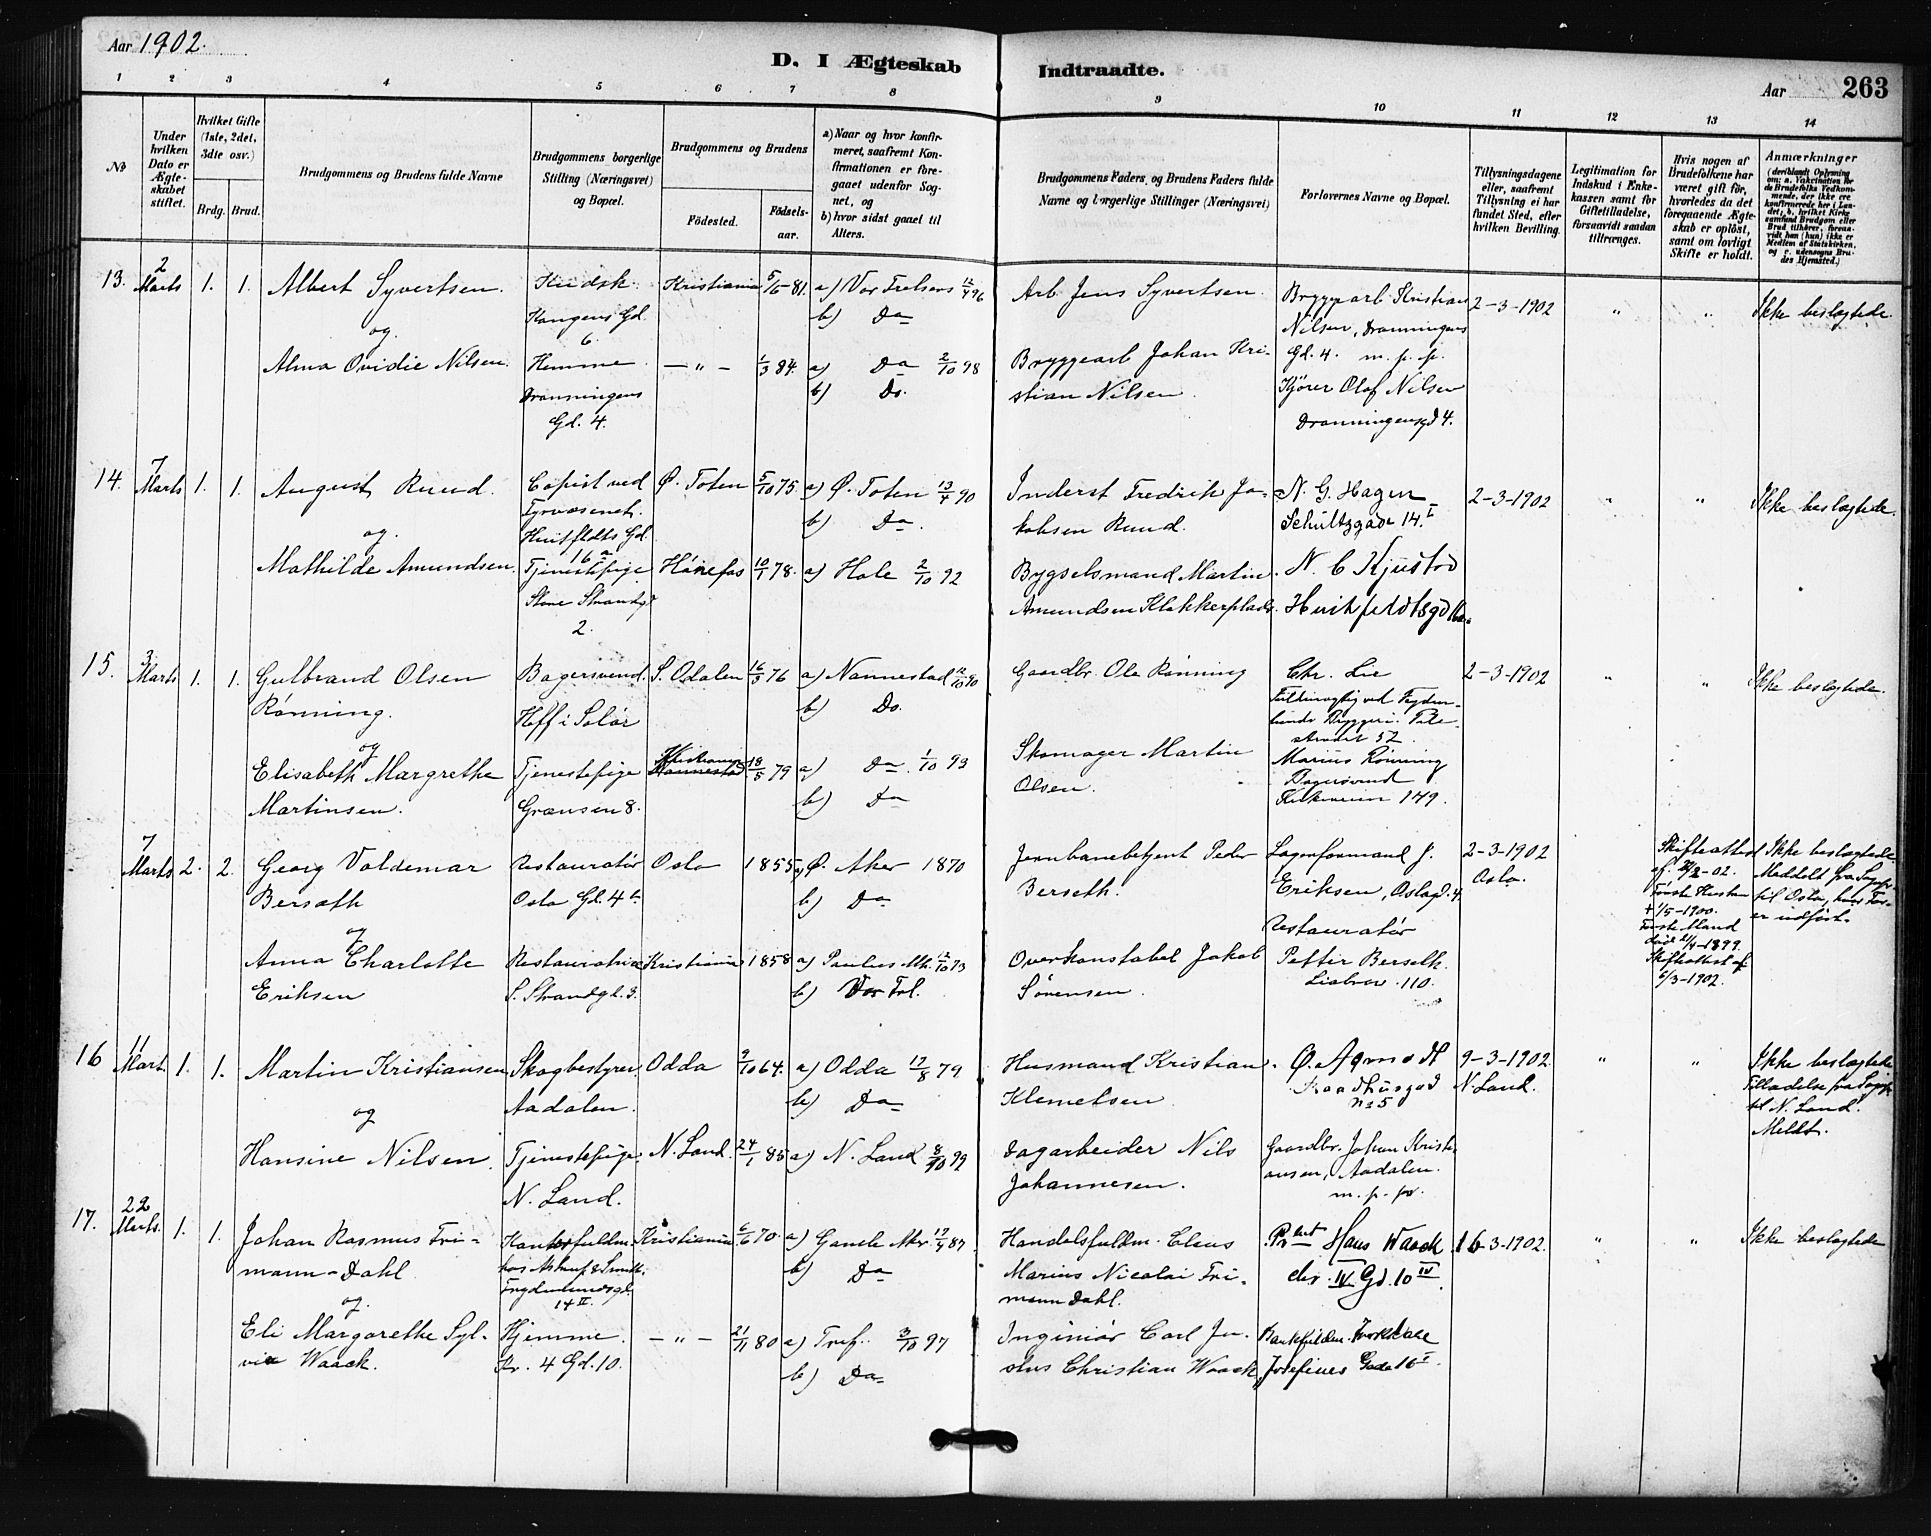 Aar 1902.
D. I Ægteskab Indtraadte.
Aar 263
1 2 3 4 5 6 7 8 9 10 11 12 13 14
No
Under hvilken Dato er Ægteskabet stiftet.
Hvilket Gifte (1ste, 2det, 3die osv.)
Brdg. Brud.
Brudgommens og Brudens fulde Navne
Brudgommens borgerlige Stilling (Næringsvei) og Bopæl.
Brudgommens og Brudens
Fødested.
Fødselsaar.
a) Naar og hvor konfirmeret, saafremt Konfirmationen er foregaaet udenfor Sognet, og
b) hvor sidst gaaet til Alters.
Brudgommens Faders, og Brudens Faders fulde Navne og borgerlige Stillinger (Næringsvei)
Forlovernes Navne og Bopæl.
Tillysningsdagene eller, saafremt Tillysning ei har fundet Sted, efter hvilken Bevilling.
Legitimation for Indskud i Enkekassen samt for Giftetilladelse, forsaavidt saadan tiltrænges.
Hvis nogen af Brudefolkene har været gift før, hvorledes da det foregaaende Ægteskab er opløst, samt om lovligt Skifte er holdt.
Anmærkninger
13. 2 Marts 1. 1. Albert Syvertsen. Kristiania 5/6-81. a) Vor Frelsers 12/4 96 Arb. Jens Syvertsen. Bryggearb. Kristian 2-3-1902 " " Ikke beslægtede.
og Kongens Gd. 6. b) Do Nilsen, Dronningens
Alma Ovidie Nilsen. Hjemme - " - 1/3 84. a) Do 2/10 98 Bryggearb. Johan Kri- Gd. 4. m. p. p.
Dronningens b) Do. stian Nilsen. Kjører Olaf Nilsen
Gd. 4. Dronningensgd 4.
14. 7 Marts 1. 1. August Ruud. Copist ved Ø. Toten 5/10 75. a) Ø. Toten 13/4 90 Inderst Fredrik Ja- N. G. Hagen 2-3-1902 " " Ikke beslægtede.
Fyrvæsenet. b) Do. kobsen Ruud. Schultzgade 14. I
og. Huitfeldts Gd. 16 a
Mathilde Amundsen. Tjenestepige Hønefos 10/1 78. a) Hole 2/10 92 Bygselsmand Martin N. C. Kjustad
Store Strandgd 2. Amundsen Klekkerplads. Huitfeldtsgd
15. 3 Marts 1. 1. Gulbrand Olsen Bagersvend. S. Odalen 16/3 76 a) Nannestad 12/10 90 Gaardbr. Ole Rønning Chr. Lie 2-3-1902 " " Ikke beslægtede.
Rønning. Hoff i Solør b) Do. Fuldmægtig ved Fryden-
og lunds Bryggeri. Pile-
stradet 52
Elisabeth Margrethe Tjenestepige Kristiania Nannestad 18/5 79 a) Do. 1/10 93 Skomager Martin Marius Rønning
Martinsen. Grænsen 8. b) Do Olsen. Bagersvend
149.
7 Marts 2. 2. Georg Valdemar Restauratør Oslo 1855 a) Ø. Aker 1870 Jernbanebetjent Peder Lagerformand J. 2-3-1902 Skifteattest Ikke beslægtede.
Berseth Oslo Gd. 4 b b) Do Berseth. Eriksen, Oslogd. 4. Oslo. Meddelt fra Sognepr.
og Restauratør Første Hustru + 1/5-1900. til Oslo,
Anna Charlotte Restauratrice Kristiania 1858 a) Paulus Mh. 12/10 73 Overkonstabel Jakob Petter Berseth. Første Mand død 21/4-1899. er indført.
Eriksen S. Strandgd. 3. b) Vor Frl. Sørensen. Liabroen 110. Skifteattest af 6/3-1902.
16 11 Mart. 1. 1. Martin Kristiansen Skogbestyrer. Odda 9/10 64. a) Odda 17/8 79 Husmand Kristian Raadhusgd No 5 9-3-1902. " " Ikke beslægtede
og Aadalen. b) Do Klemetsen. N. Land. Tilladelse fra Sognepr. til N. Land. Meldt.
Hansine Nilsen. Tjenestepige N. Land. 24/1 85 a) N. Land 8/10 99 Dagarbeider Nils Gaardbr. Johan Kristi-
N. Land. Johannesen. ansen, Aadalen. m. p. p.
17. 22 Marts. 1. 1. Johan Rasmus Fri- Kontorfuldm. Kristiania 6/6 70. a) Gamle Aker 17/4 87 Handelsfuldm. Claus Hans Waack 16-3-1902. " " Ikke beslægtede
mann-Dahl b) Do Marius Nicolai Fri- Chr. IV Gd. 10 IV.
og. 14 II. mann Dahl.
Eli Margarethe Syl- Hjemme. - " - 21/11 80 a) Tref. 3/10 97 Ingeniør Carl Ju-
via Waack. Kr. 4 Gd. 10. b) Do stus Christian Waack. Josefines Gade 16 I.